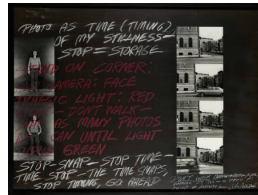 PHOTO AS TIME (TIMING)
OF MY STILLNESS—
STOP = STORAGE
STAND ON CORNER:
CAMERA: FACE
TRAFFIC LIGHT: RED
— DON'T WALK —
AS MANY PHOTOS
CAN UNTIL LIGHT
GREEN
STOP—SNAP—STOP TIME—
TIME STOP—THE TIME SNAPS,
STOP TIMING, GO AHEAD